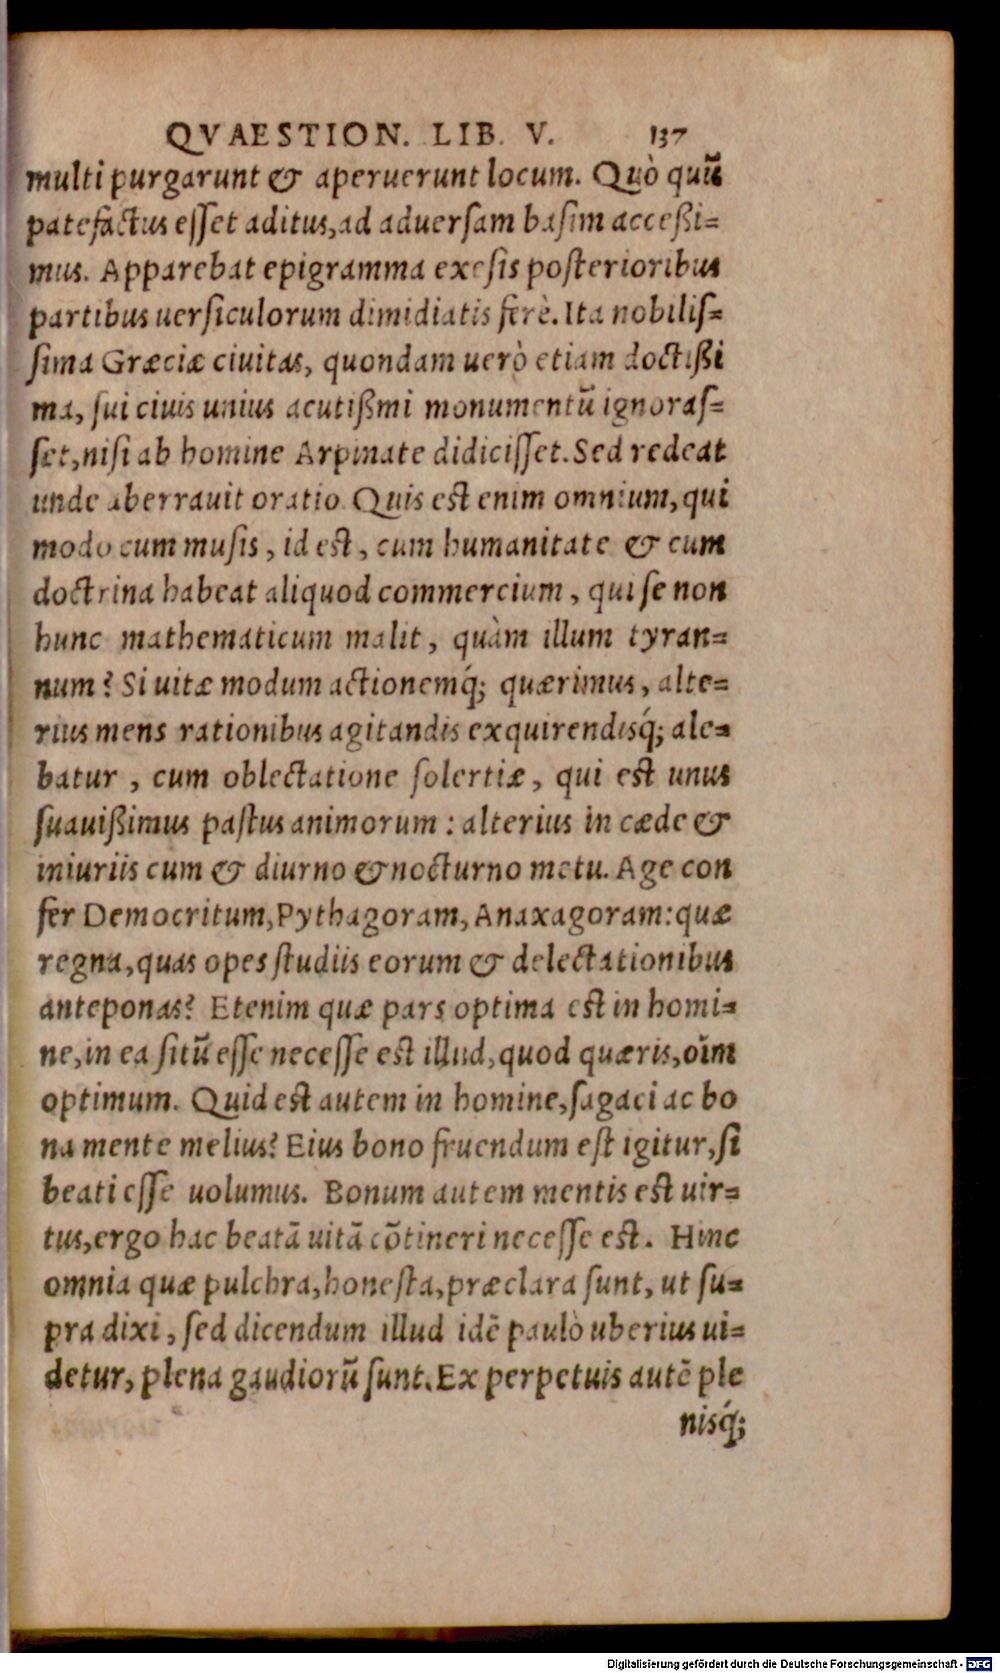 QVAESTION. LIB. V. 137
multi purgarunt & aperuerunt locum. Quò quũ
patefactus eſſet aditus, ad aduerſam baſim acceßi=
mus. Apparebat epigramma exeſis poſterioribus
partibus uerſiculorum dimidiatis ferè. Ita nobiliſ=
ſima Græciæ ciuitas, quondam uerò etiam doctißi
ma, ſui ciuis unius acutißmi monumentũ ignoraſ=
ſet, niſi ab homine Arpinate didiciſſet. Sed redeat
unde aberrauit oratio. Quis est enim omnium, qui
modo cum muſis, id est, cum humanitate & cum
doctrina habeat aliquod commercium, qui ſe non
hunc mathematicum malit, quàm illum tyran=
num? Si uitæ modum actionemq́; quærimus, alte=
rius mens rationibus agitandis exquirendisq́; ale=
batur, cum oblectatione ſolertiæ, qui est unus
ſuauißimus paſtus animorum: alterius in cæde &
iniuriis cum & diurno & nocturno metu. Age con
fer Democritum, Pythagoram, Anaxagoram: quæ
regna, quas opes ſtudiis eorum & delectationibus
anteponas? Etenim quæ pars optima est in homi=
ne, in ea ſitũ eſſe neceſſe est illud, quod quæris, oīm
optimum. Quid est autem in homine, ſagaci ac bo
na mente melius? Eius bono fruendum eſt igitur, ſi
beati eſſe uolumus. Bonum autem mentis est uir=
tus, ergo hac beatã uitã cõtineri neceſſe est. Hinc
omnia quæ pulchra, honeſta, præclara ſunt, ut ſu=
pra dixi, ſed dicendum illud idẽ paulò uberius ui=
detur, plena gaudiorũ ſunt. Ex perpetuis autẽ ple
nisq́;
Digitalisierung gefördert durch die Deutsche Forschungsgemeinschaft - DFG